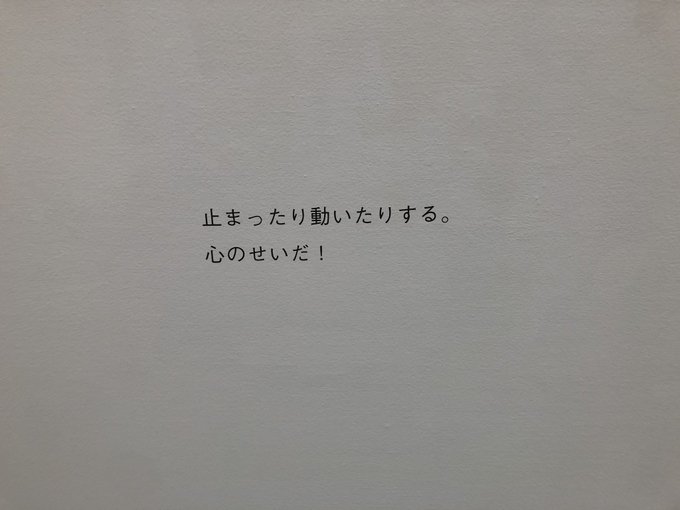 止まったり動いたりする。
心のせいだ！